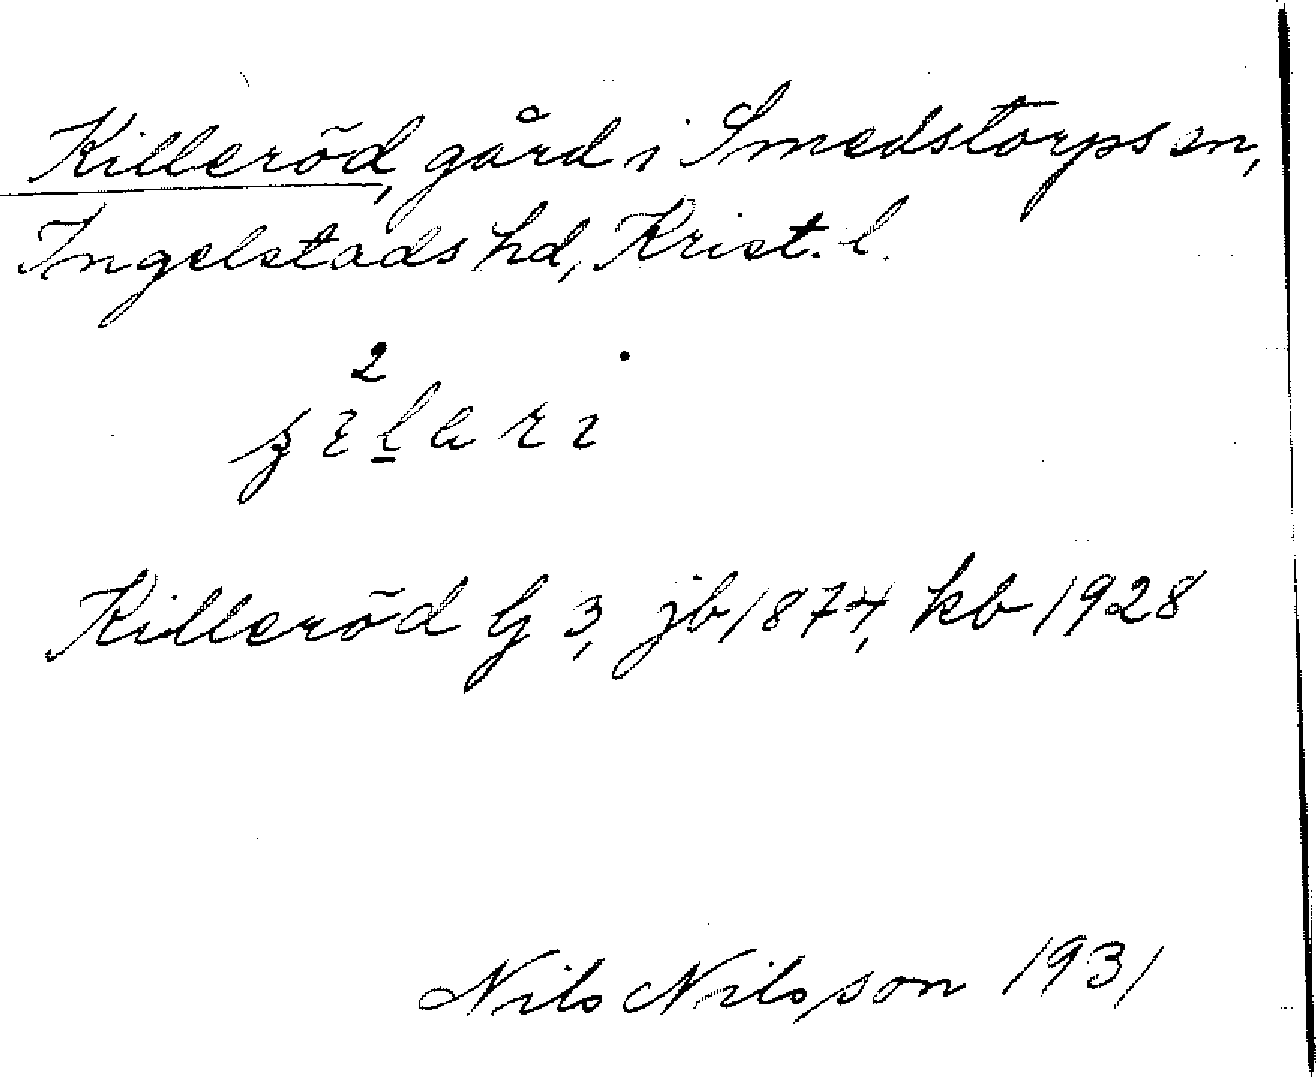 Killeröd, gård i Smedstorps sn,
Ingelstads hd, Krist. l.
2
Killeröd G 3, jb 1874, kb 1928
Nils Nilsson 1931